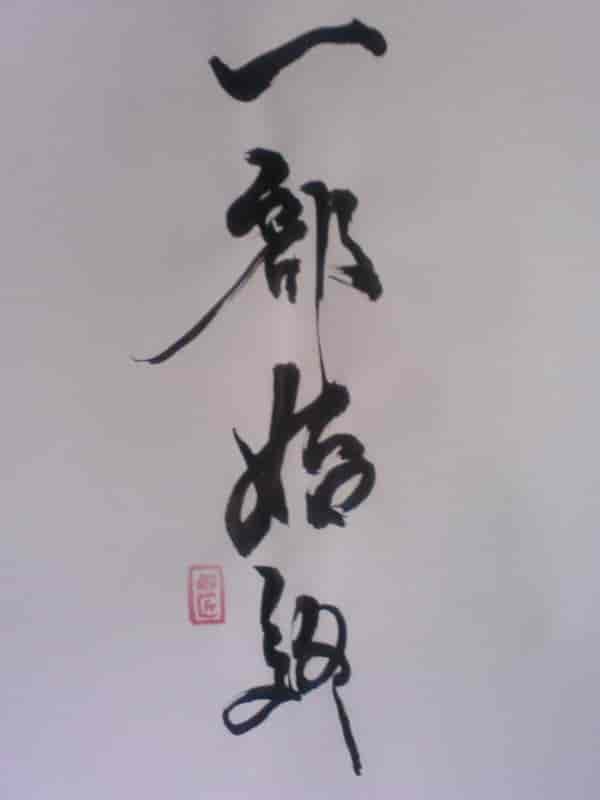 一部始終